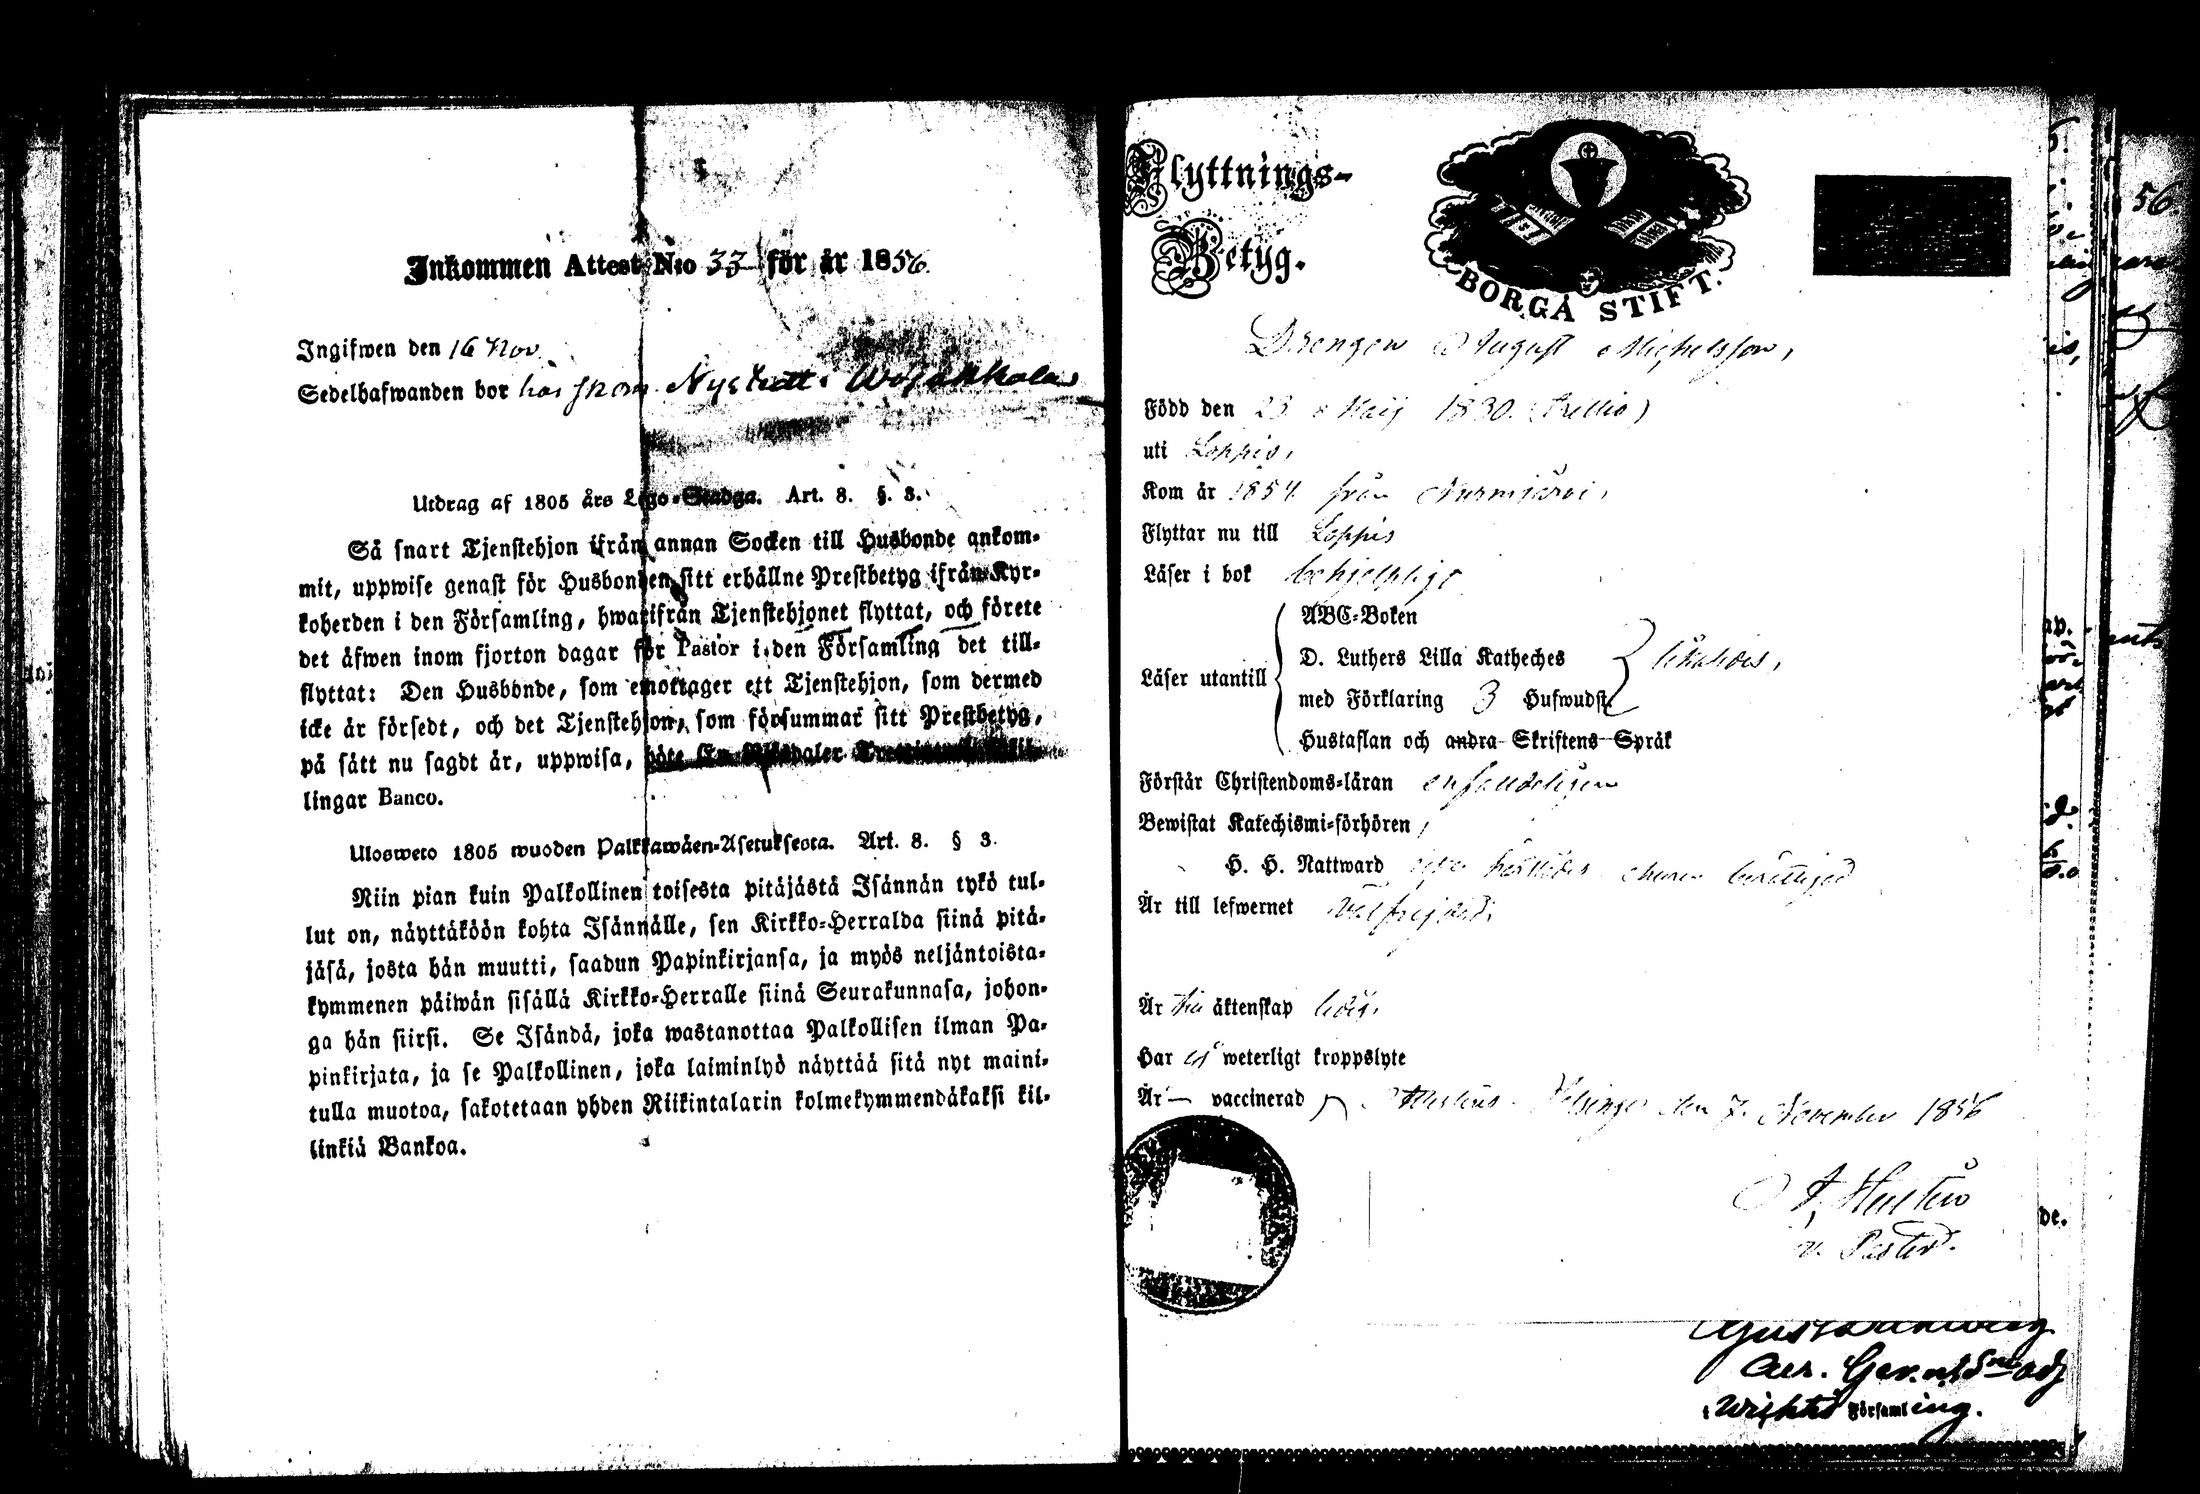 Inkommen Attest N:o 33 för år 1856.
Ingifwen den 16 Nov.
Sedelhafwanden bor hos
Utdrag af 1805 års Lego-Stadga. Art. 8. §. 3.
Så snart Tjenstehjon ifrån annan Socken till Husbonde ankom-
mit, uppwise genast för Husbonden sitt erhållne Prestbetyg ifrån Kyr-
koherden i den Församling, hwarifrån Tjenstehjonet flyttat, och förete
det äfwen inom fjorton dagar för Pastor i den Församling det till-
flyttat: Den Husbonde, som emottager ett Tjenstehjon, som dermed
icke är försedt, och det Tjenstehjon, som försummar sitt Prestbetyg,
på sätt nu sagdt är, uppwisa, böte En Riksdaler
lingar Banco.
Ulosweto 1805 wuoden Palkkawäen-Asetuksesta. Art. 8. § 3.
Niin pian kuin Palkollinen toisesta pitäjästä Isännän tykö tul-
lut on, näyttäköön kohta Isännälle, sen Kirkko-Herralda siinä pitä-
jäsä, josta hän muutti, saadun Papinkirjansa, ja myös neljäntoista-
kymmenen päiwän sisällä Kirkko-Herralle siinä Seurakunnasa, johon-
ga hän siirsi. Se Isändä, joka wastanottaa Palkollisen ilman Pa-
pinkirjata, ja se Palkollinen, joka laiminlyö näyttää sitä nyt maini-
tulla muotoa, sakotetaan yhden Riikintalarin kolmekymmendäkaksi kil-
linkiä Bankoa.
Flyttnings-
Betyg.
BORGÅ STIFT.
Drengen August Michelsson,
Född den 23 Maij 1830.
uti Loppis,
Kom år 1854 från Nurmijärvi,
Flyttar nu till Loppis
Läser i bok behjelpligt
Läser utantill
ABC-Boken
D. Luthers Lilla Katheches
med Förklaring 3 Hufwudst.
Hustaflan och andra Skriftens Språk
Förstår Christendoms-läran enfaldeligen
Bewistat Katechismi-förhören,
H. H. Nattward
Är till lefwernet välfrejdad.
Är till äktenskap ledig.
Har ej weterligt kroppslyte
Är vaccinerad Helsinge den 7. November 1856
v. Pastor.
de.
i Församling.
56